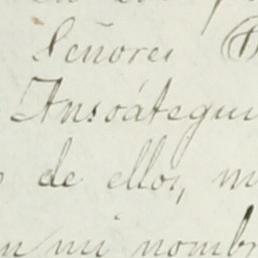 Señores
Ansoátegui
de ellos, m
en mi nombr